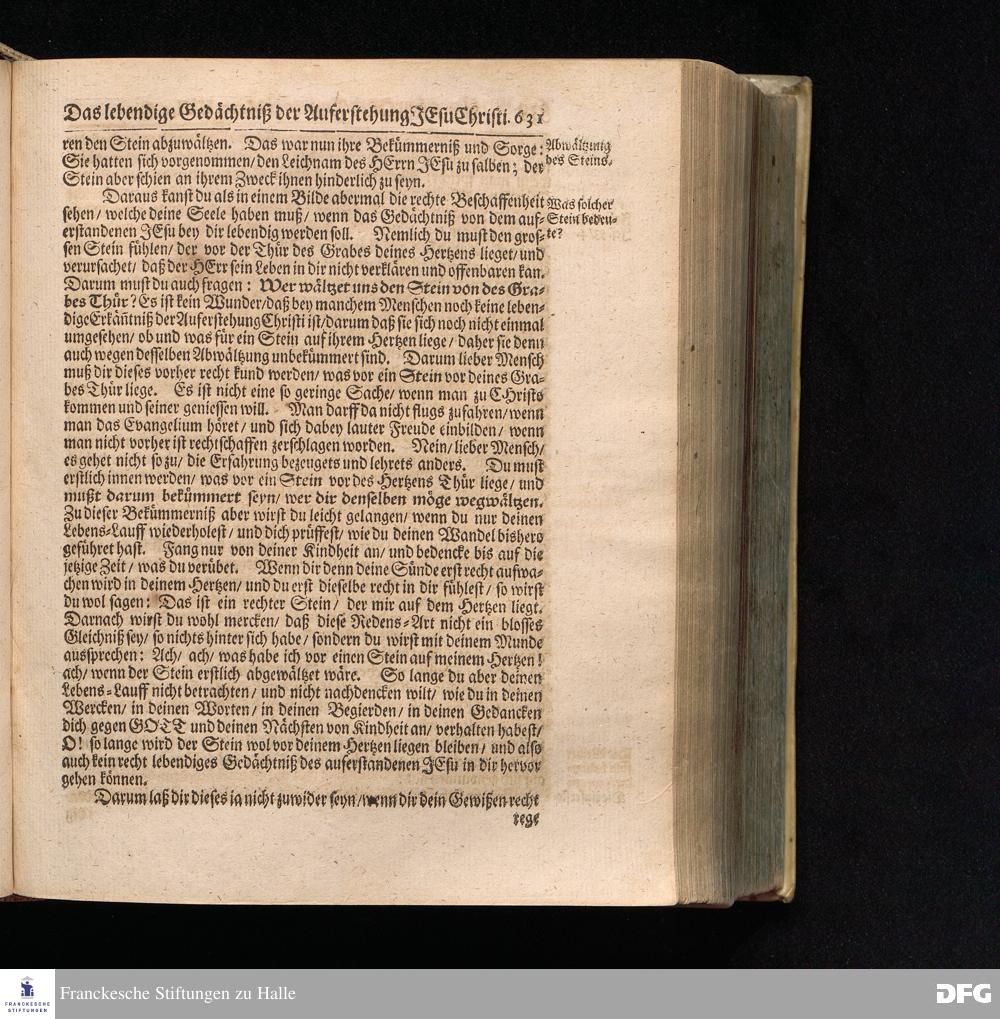 Das lebendige Gedächtniß der Auferstehung JEsu Christi. 631
ren den Stein abzuwältzen. Das war nun ihre Bekümmerniß und Sorge:
Sie hatten sich vorgenommen/ den Leichnam des HErrn JEsu zu salben; der
Stein aber schien an ihrem Zweck ihnen hinderlich zu seyn.
Abwältzung
des Steins.
Daraus kanst du als in einem Bilde abermal die rechte Beschaffenheit
sehen/ welche deine Seele haben muß/ wenn das Gedächtniß von dem auf-
erstandenen JEsu bey dir lebendig werden soll. Nemlich du must den gros-
sen Stein fühlen/ der vor der Thür des Grabes deines Hertzens lieget/ und
verursachet/ daß der HErr sein Leben in dir nicht verklären und offenbaren kan.
Darum must du auch fragen: Wer wältzet uns den Stein von des Gra-
bes Thür? Es ist kein Wunder/ daß bey manchem Menschen noch keine leben-
dige Erkäñtniß der Auferstehung Christi ist/ darum daß sie sich noch nicht einmal
umgesehen/ ob und was für ein Stein auf ihrem Hertzen liege/ daher sie denn
auch wegen desselben Abwältzung unbekümmert sind. Darum lieber Mensch
muß dir dieses vorher recht kund werden/ was vor ein Stein vor deines Gra-
bes Thür liege. Es ist nicht eine so geringe Sache/ wenn man zu CHristo
kommen und seiner geniessen will. Man darff da nicht flugs zufahren/ wenn
man das Evangelium höret/ und sich dabey lauter Freude einbilden/ wenn
man nicht vorher ist rechtschaffen zerschlagen worden. Nein/ lieber Mensch/
es gehet nicht so zu/ die Erfahrung bezeugets und lehrets anders. Du must
erstlich innen werden/ was vor ein Stein vor des Hertzens Thür liege/ und
mußt darum bekümmert seyn/ wer dir denselben möge wegwältzen.
Zu dieser Bekümmerniß aber wirst du leicht gelangen/ wenn du nur deinen
Lebens-Lauff wiederholest/ und dich prüffest/ wie du deinen Wandel bishero
geführet hast. Fang nur von deiner Kindheit an/ und bedencke bis auf die
jetzige Zeit/ was du verübet. Wenn dir denn deine Sünde erst recht aufwa-
chen wird in deinem Hertzen/ und du erst dieselbe recht in dir fühlest/ so wirst
du wol sagen: Das ist ein rechter Stein/ der mir auf dem Hertzen liegt.
Darnach wirst du wohl mercken/ daß diese Redens-Art nicht ein blosses
Gleichniß sey/ so nichts hinter sich habe/ sondern du wirst mit deinem Munde
aussprechen: Ach/ ach/ was habe ich vor einen Stein auf meinem Hertzen!
ach/ wenn der Stein erstlich abgewältzet wäre. So lange du aber deinen
Lebens-Lauff nicht betrachten/ und nicht nachdencken wilt/ wie du in deinen
Wercken/ in deinen Worten/ in deinen Begierden/ in deinen Gedancken
dich gegen GOTT und deinen Nächsten von Kindheit an/ verhalten habest/
O! so lange wird der Stein wol vor deinem Hertzen liegen bleiben/ und also
auch kein recht lebendiges Gedächtniß des auferstandenen JEsu in dir hervor
gehen können.
Was solcher
Stein bedeu-
te?
Darum laß dir dieses ja nicht zuwider seyn/ wenn dir dein Gewißen recht
rege
FRANCKESCHE
STIFTUNGEN
Franckesche Stiftungen zu Halle
DFG